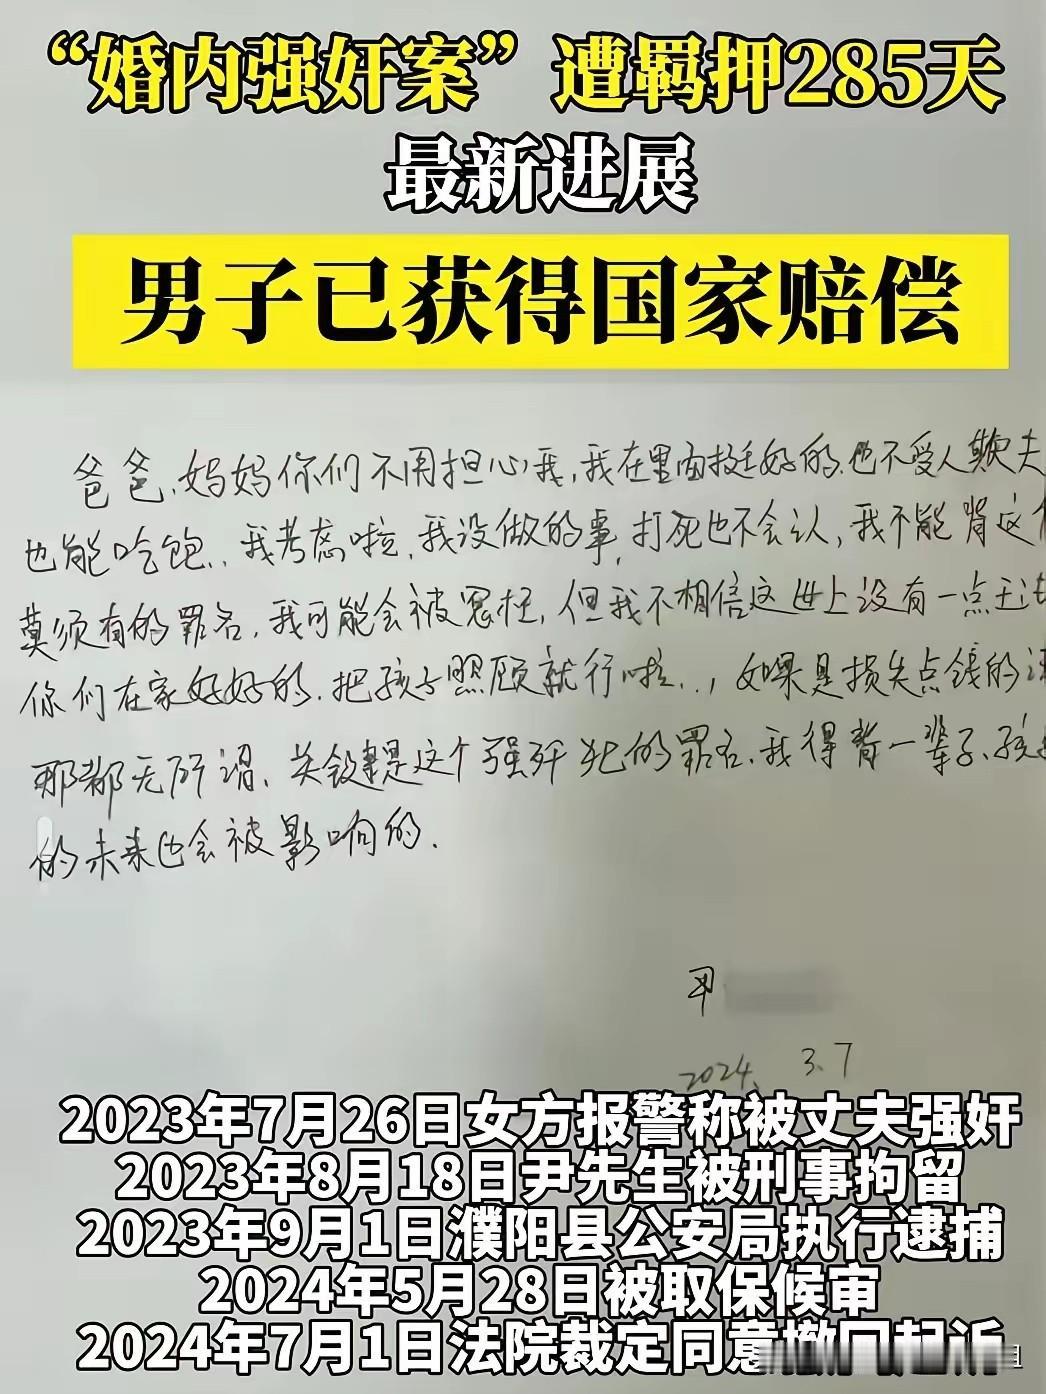 “婚内强奸案”遭羁押285天
最新进展
男子已获得国家赔偿
爸爸、妈妈你们不用担心我,我在里面挺好的.也不受人欺夫
也能吃饱..我考虑啦,我没做的事,打死也不会认,我不能背这个
莫须有的罪名,我可能会被冤枉,但我不相信这世上没有一点王法
你们在家好好的.把孩子照顾就行啦..,如果是损失点钱的话
那都无所谓、关键是这个强奸犯的罪名.我得背一辈子.孩子
的未来也会被影响的.
尹
2024.3.7
2023年7月26日女方报警称被丈夫强奸
2023年8月18日尹先生被刑事拘留
2023年9月1日濮阳县公安局执行逮捕
2024年5月28日被取保候审
2024年7月1日法院裁定同意撤回起诉